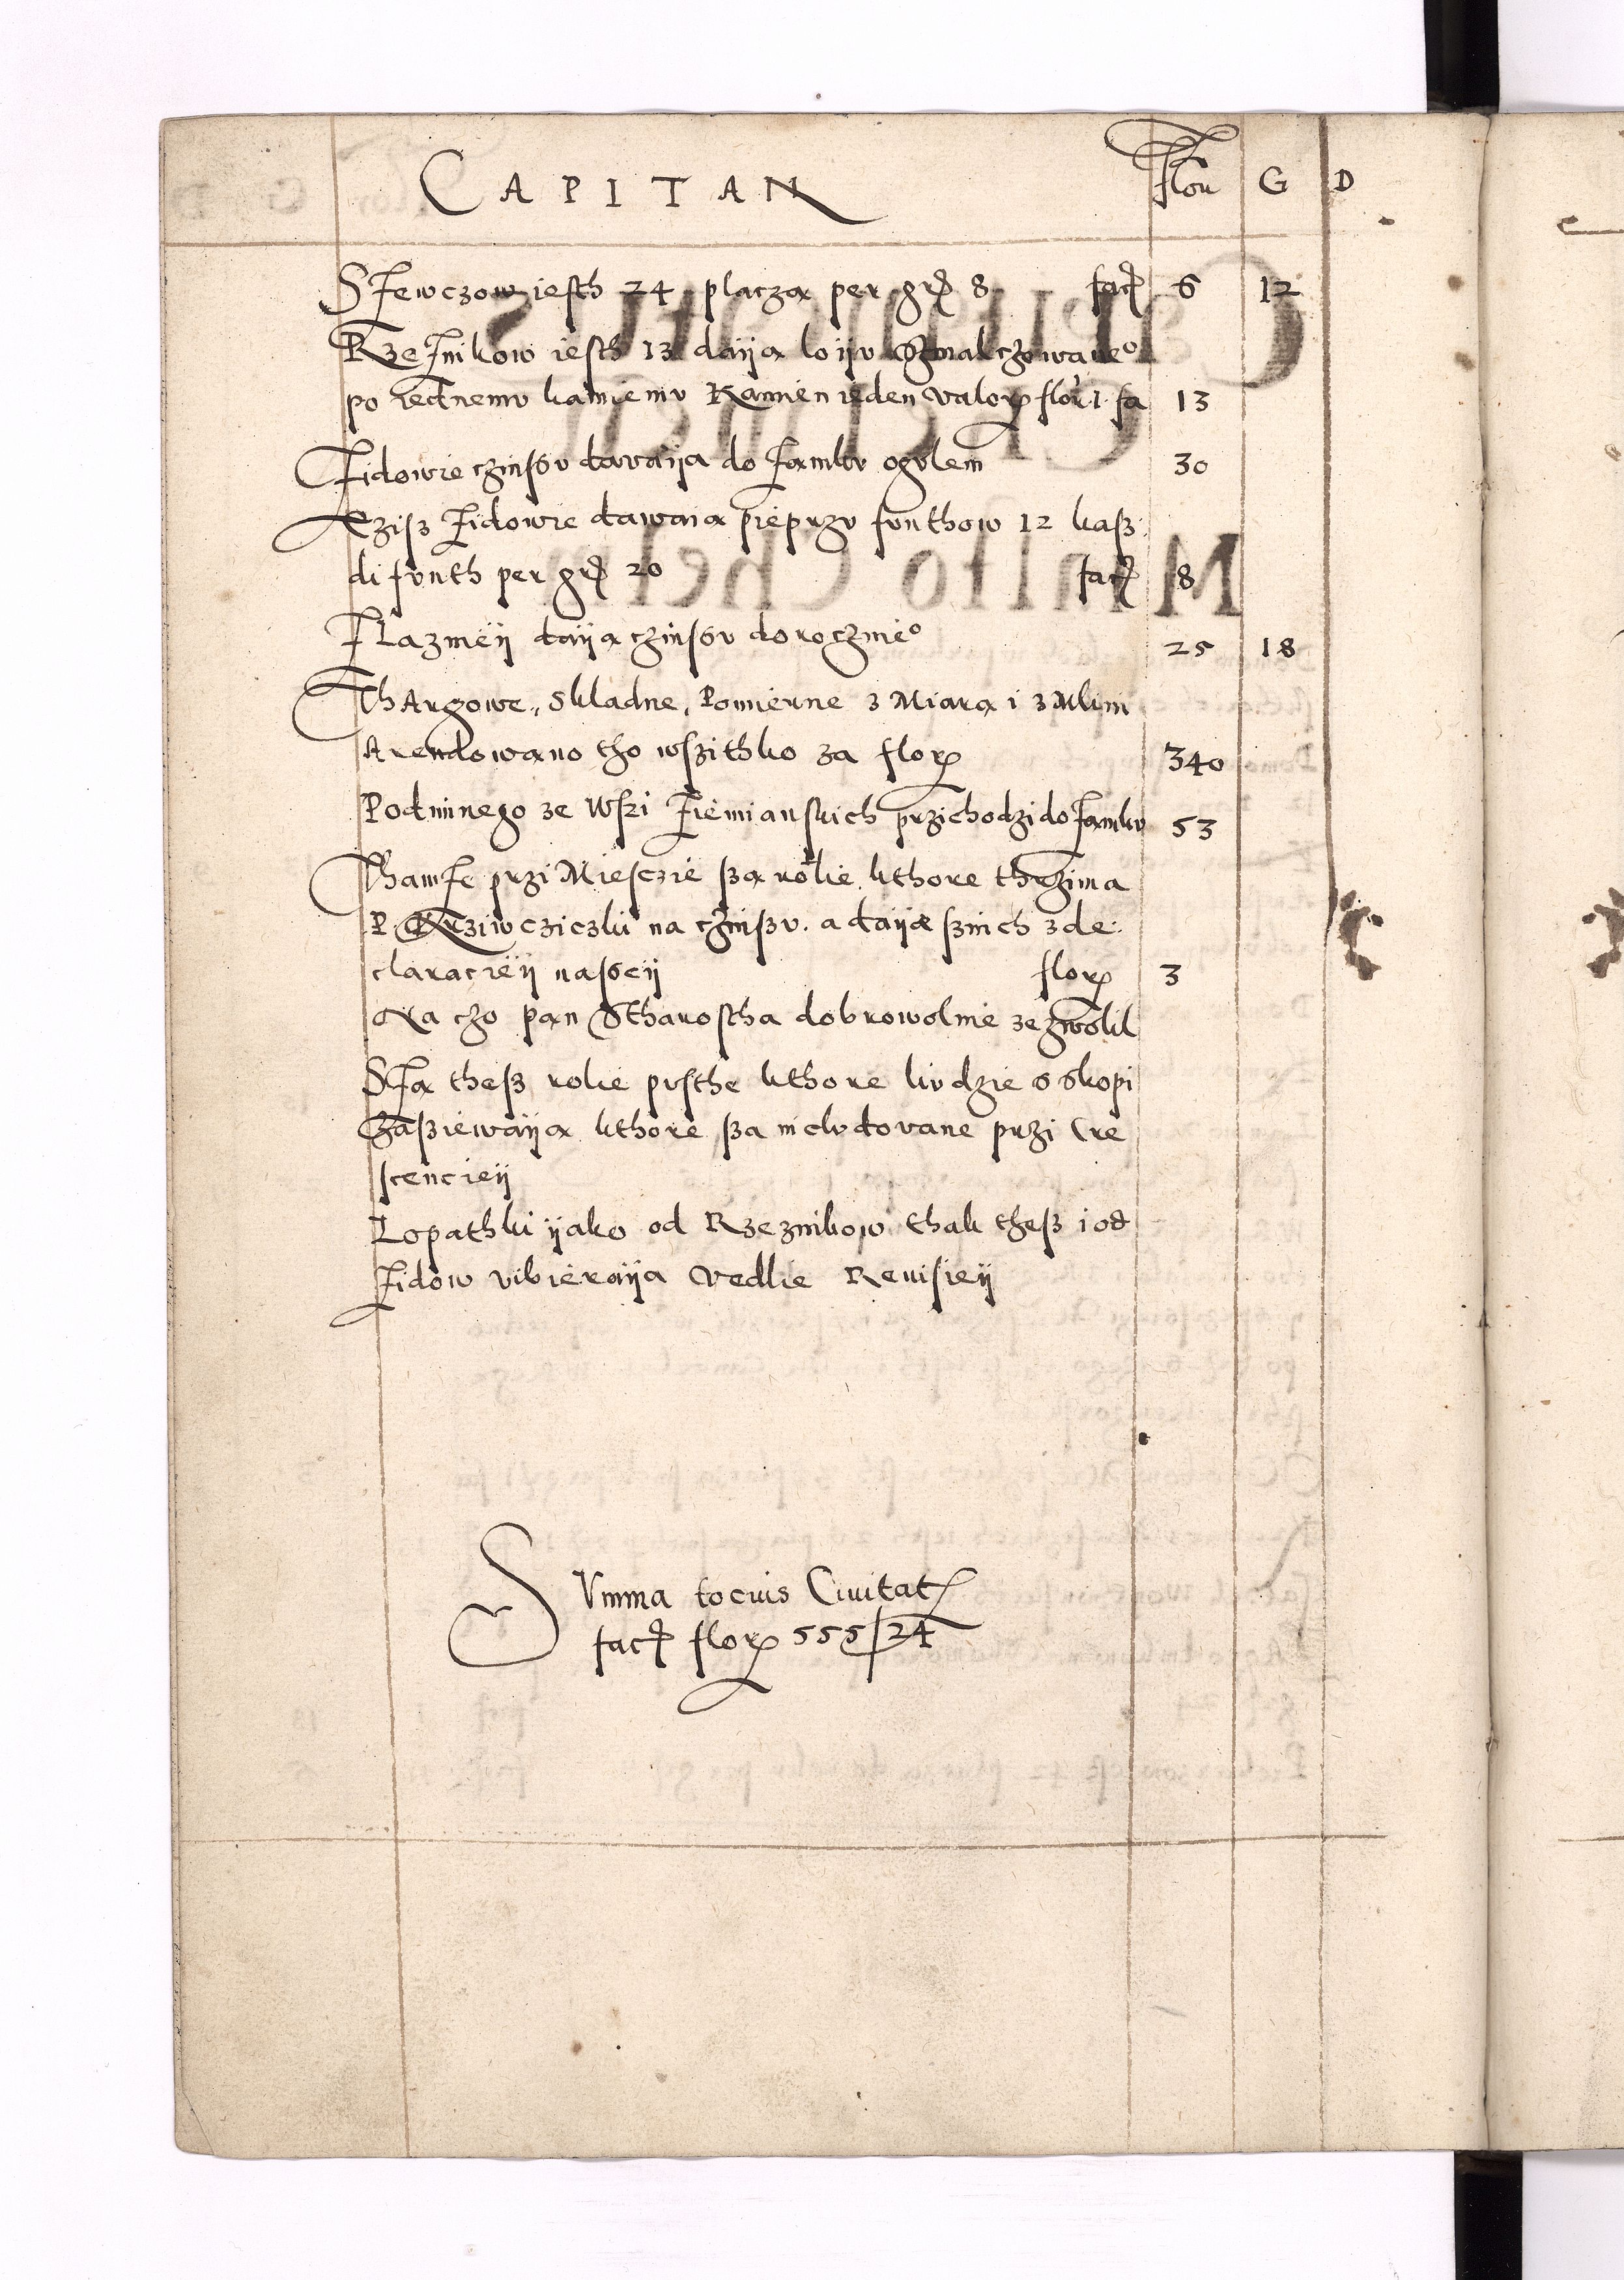 CAPITAN Flor G D
SZewczow iesth 24 placza per gr 8 fac 6 12
RzeZnikow iesth 13 daiją loijv Szmalczowane°
po iednemv kamienv Kamien ieden valor flor 1 fa 13
Zidowie czinsov davaiją do Zamkv ogolem 30
Cziß Zidowie dawaią pieprzv fvnthow 12 kaß:
di fvnth per gr 20 fac 8
ŁaZniey daiją czinsov dorocznie° 25 18
ThArgowe, Skladne, Pomierne z Miarą i z Mlini
Arendowano tho wszithko za flor 340
Podimnego ze Wszi Ziemianskich przichodzi do Zamkv 53
ThamZe przi Miesczie ßą rolie kthore thrzima
P. Krziwcziczki na czinßv. a daiją ßnich z de:
claraciey naßey flor 3
Na czo pan Stharostha dobrowolnie zezwolil
SZą theß rolie pvsthe kthore lvdzie s skopi
Zaßiewaiją kthore ßa inclvdovane przi Cre
scenciey
Lopathki ijako od Rzeznikow thak theß i od
Zidow vibieraiją Vedlie Reuisiey
SVmma tocius Ciuitat
fac flor 555/24